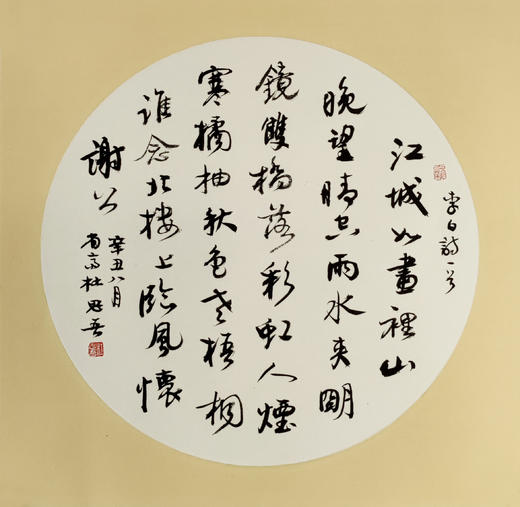 李白詩一首
江城如畫裡山
晚望晴空雨水夾明
鏡雙橋落彩虹人煙
寒橘柚秋色老梧桐
誰念北樓上臨風懷
謝公
辛丑八月
高杜